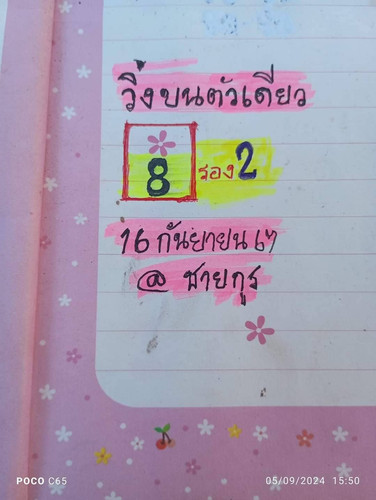 วิ่งบนตัวเดียว
8 รอง 2
16 กันยายน ๖๗
@ ชายกูร
POCO C65
05/09/2024 15:50